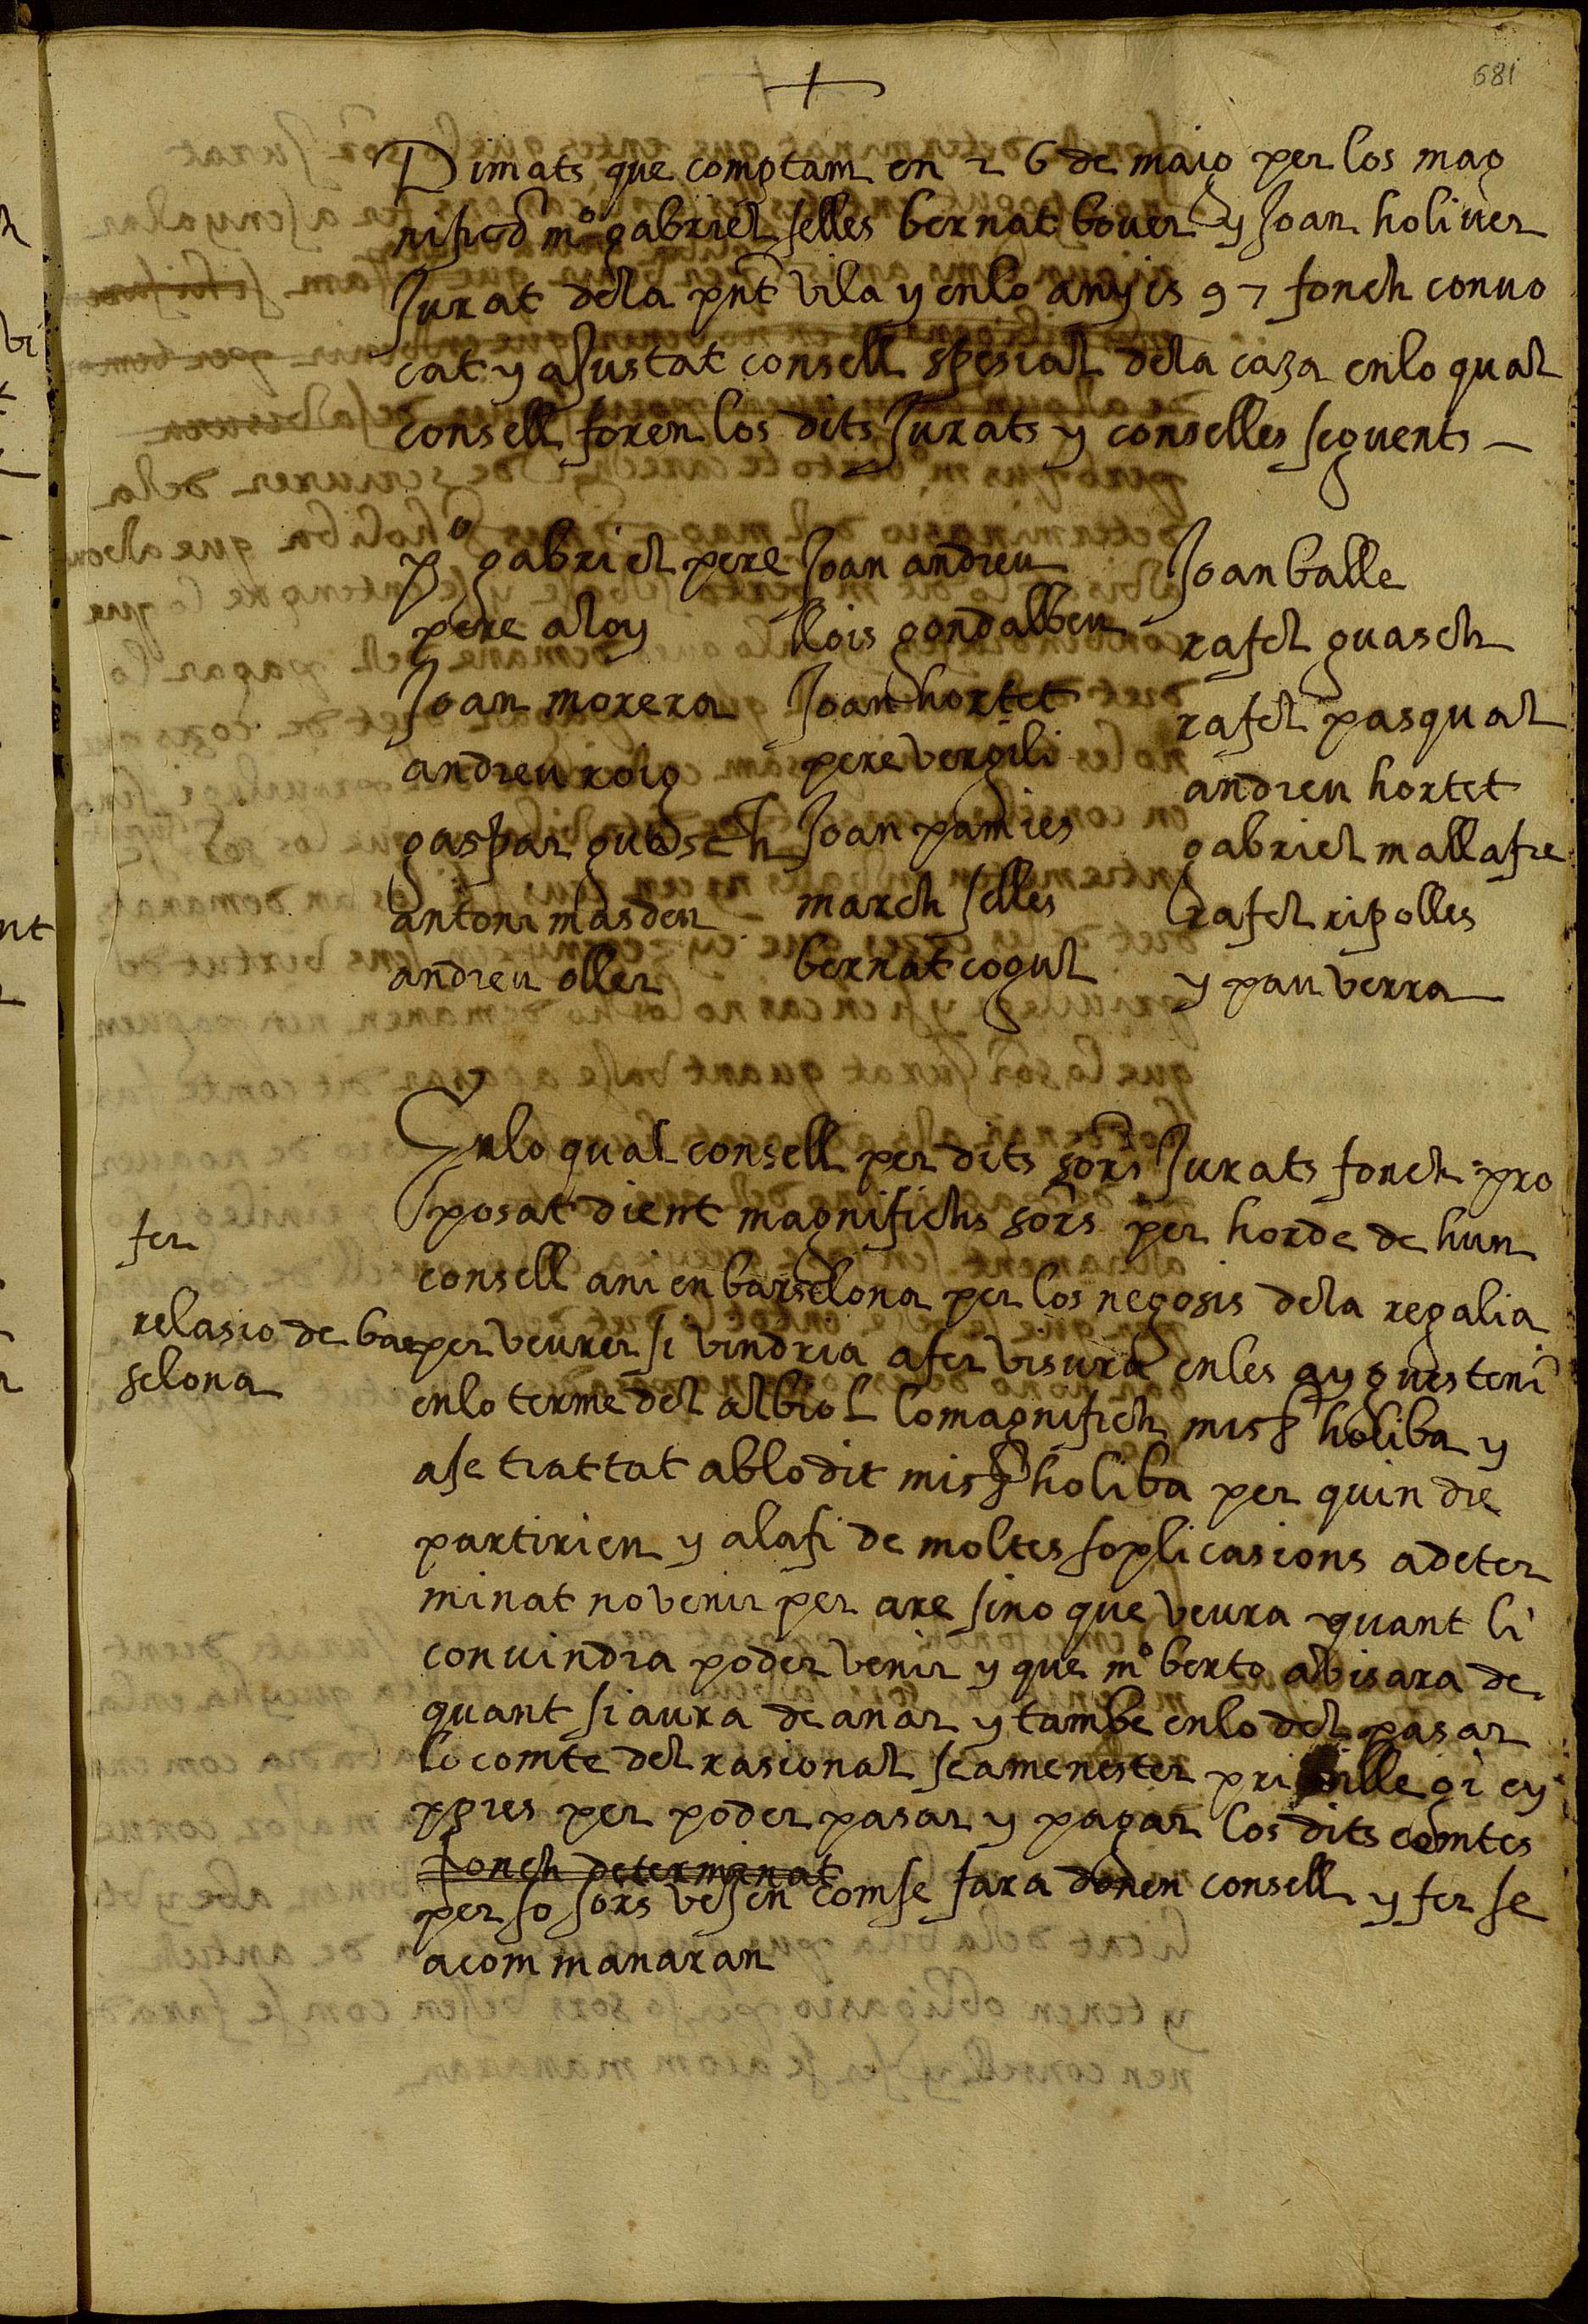 681
Dimats que comptam en 26 de maig per los mag
nifichs mº gabriel selles bernat bover y Joan holiver
Jurat dela pnt vila y enlo any is 97 fonch convo
cat y ajustat consell spesial dela caza enlo qual
consell foren los dits Jurats y conselles seguents
pº gabriel pere Joan andreu Joan balle
pere aloy llois gondalbeu rafel guasch
Joan morera Joan hortet rafel pasqual
andreu roig pere vergili andreu hortet
gaspar guasch Joan pamies gabriel mallafre
antoni masdeu march selles rafel ripolles
andreu oller bernat cogul y pau verra
Enlo qual consell per dits sors Jurats fonch pro
posat dient magnifichs sors per horde de hun
fer
consell ani en barselona per los negosis dela regalia
relasio de bar
per veurer si vindria afer visura enles aygues tenim
selona
enlo terme del albiol lo magnifich misr holiba y
ase trattat ablo dit misr holiba per quin die
partirien y alafi de moltes soplicasions a deter
minat no venir per are sino que veura quant li
convindra poder venir y que mº berto abisara de
quant si aura de anar y tambe enlo del pasar
lo comte del rasional sea menester privillegi ey
pres per poder pasar y pagar los dits comtes
fonch determinat
per so sors vesen com se fara donen consell y fer se
a com manaran